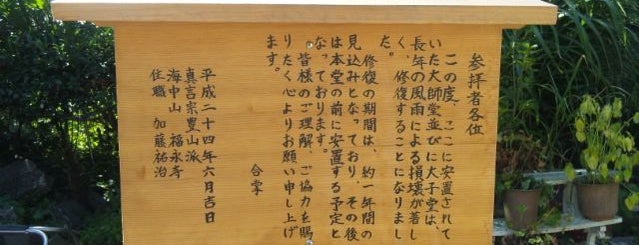 参拝者各位
この度、ここに安置されて
いた大師堂並びに大子堂は、
長年の風雨による損壊が著し
く、修復することになりまし
た。
修復の期間は、約一年間の
見込みとなっており、その後
は本堂の前に安置する予定と
なっております。
皆様のご理解、ご協力を賜
りたく心よりお願い申し上げ
ます。
合掌
平成二十四年六月吉日
真言宗豊山派
海中山 福永寺
住職 加藤祐治